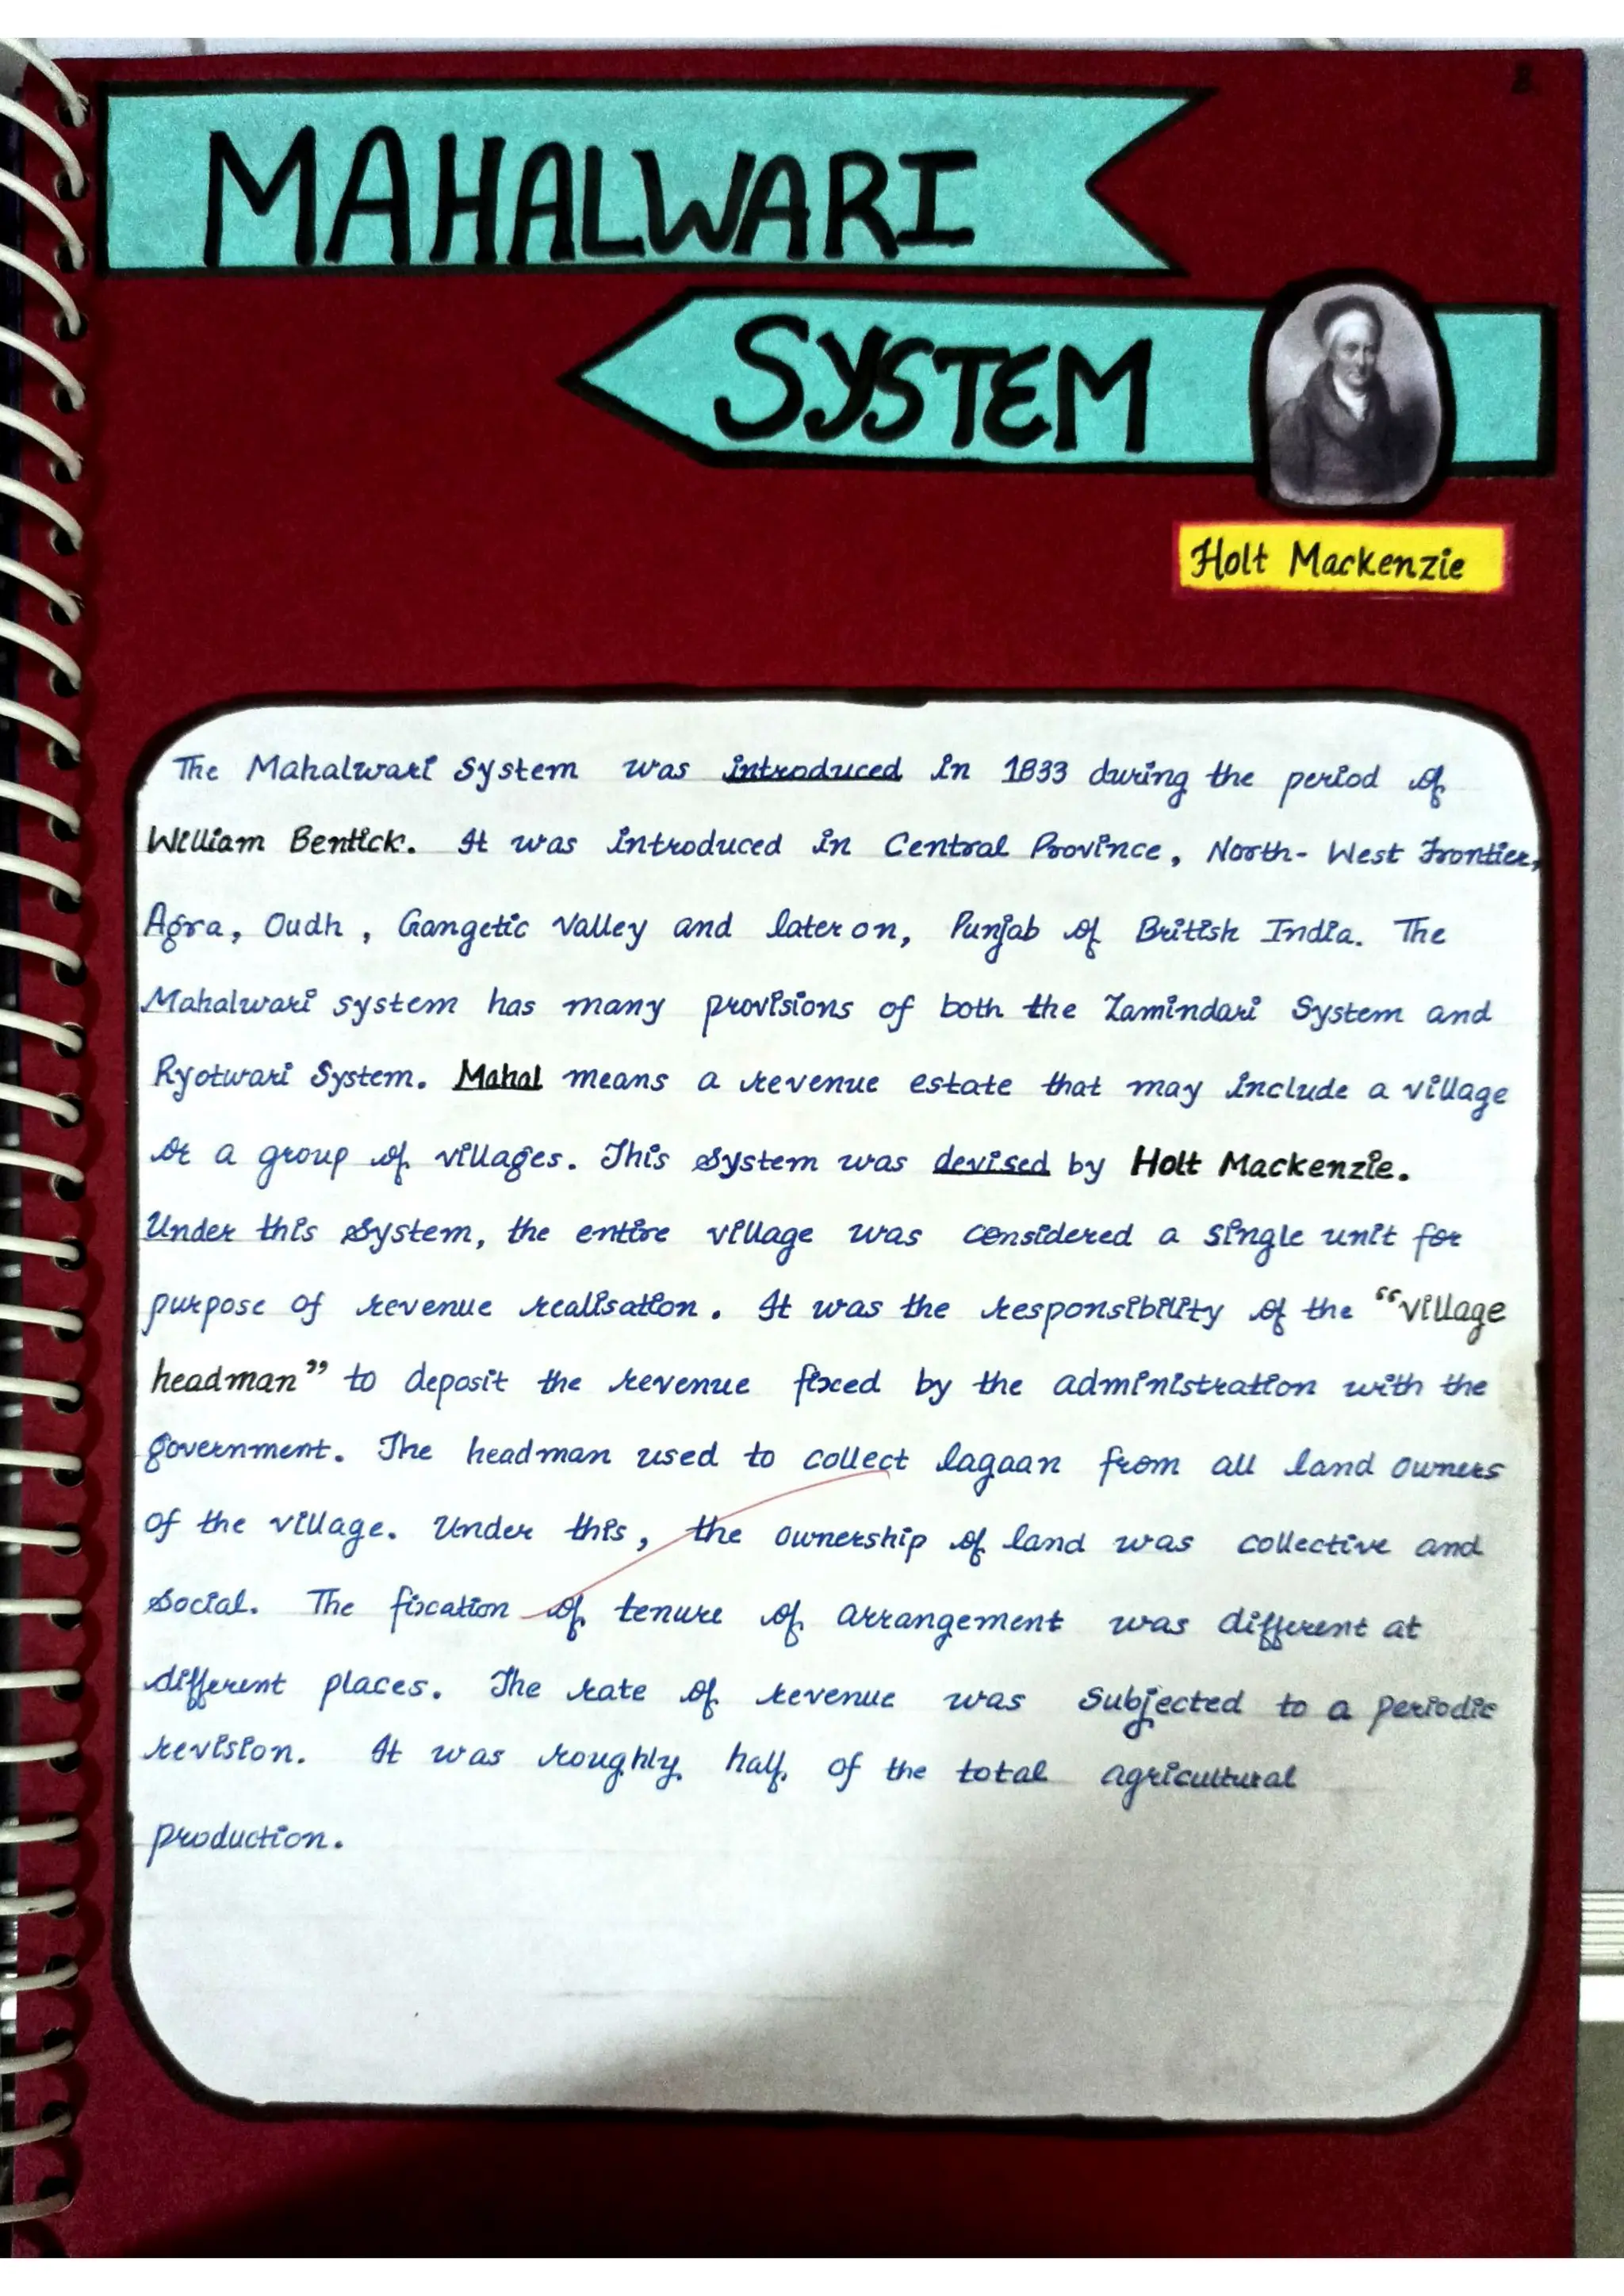 MAHALWARI
SYSTEM
Holt Mackenzie
The Mahalwari System was introduced in 1833 during the period of
William Bentick. It was introduced in Central Province, North-West Frontier,
Agra, Oudh, Gangetic Valley and later on, Punjab of British India. The
Mahalwari system has many provisions of both the Zamindari System and
Ryotwari System. Mahal means a revenue estate that may include a village
or a group of villages. This system was devised by Holt Mackenzie.
Under this system, the entire village was considered a single unit for
purpose of revenue realisation. It was the responsibility of the "village
headman" to deposit the revenue fixed by the administration with the
government. The headman used to collect lagaan from all land owners
of the village. Under this, the ownership of land was collective and
social. The fixation of tenure of arrangement was different at
different places. The rate of revenue was subjected to a periodic
revision. It was roughly half of the total agricultural
production.